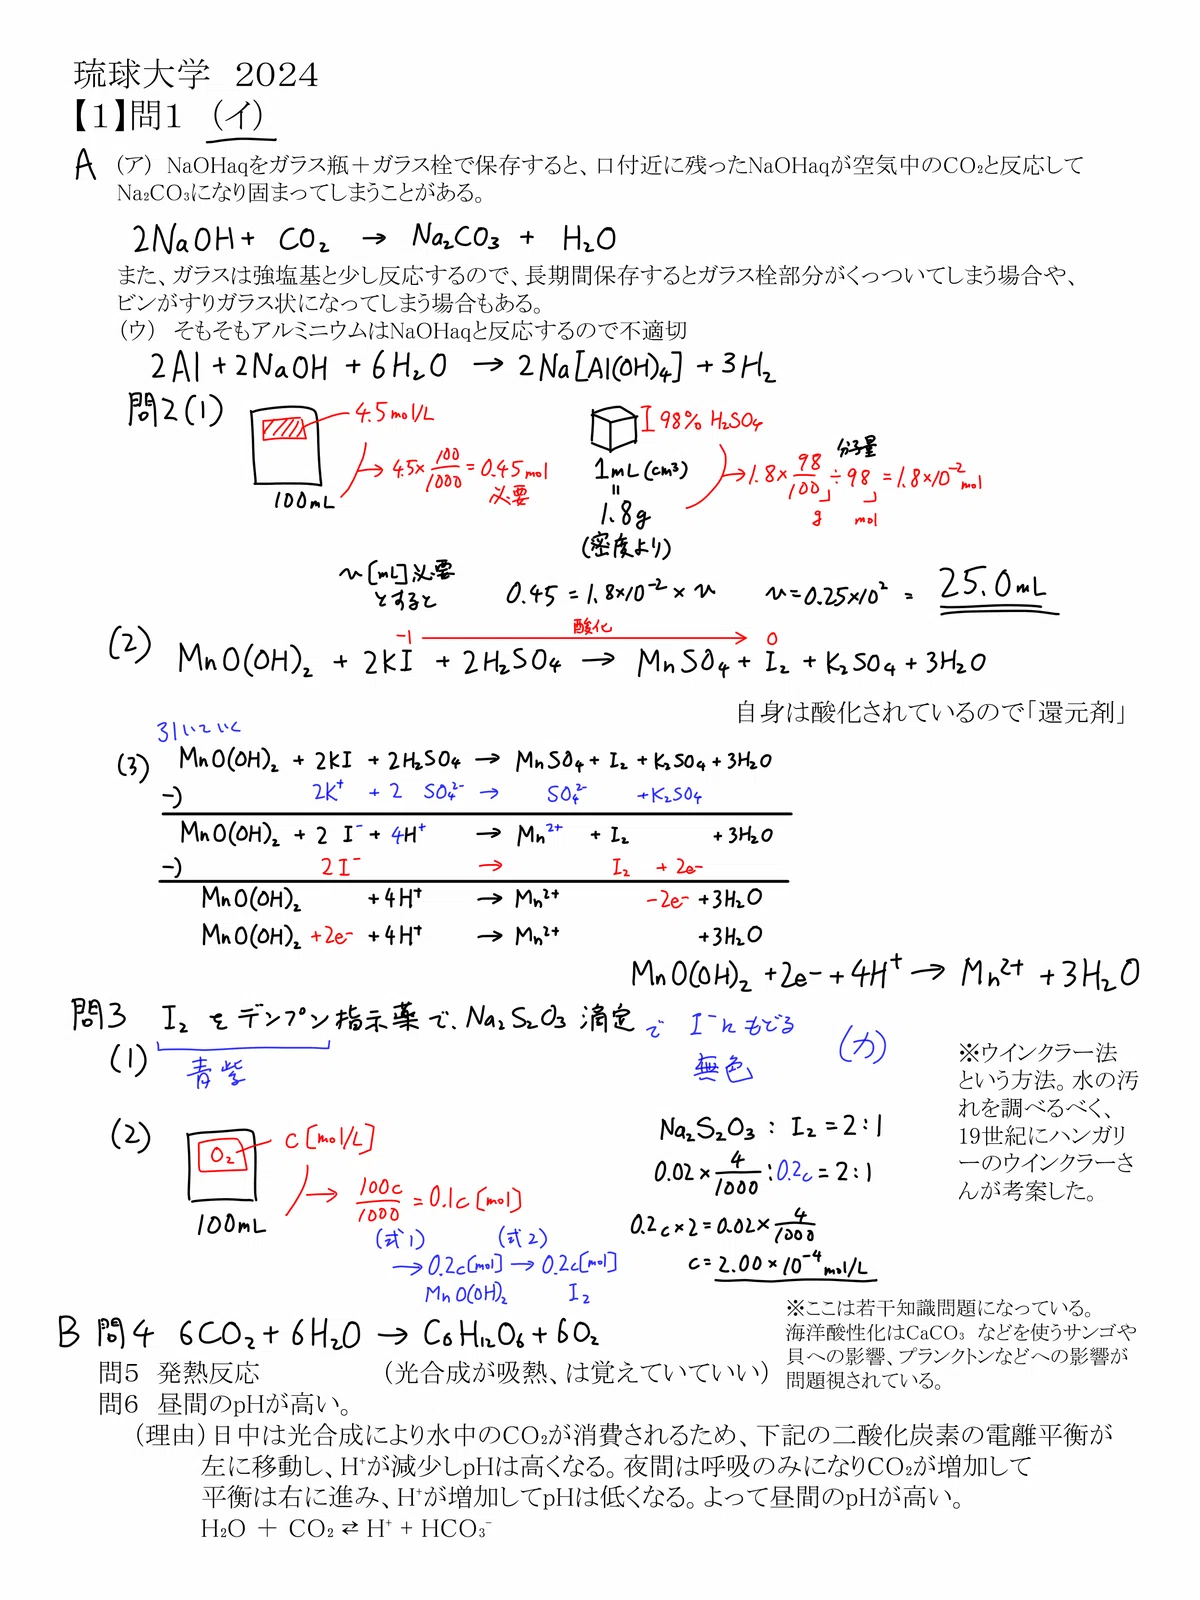 琉球大学　2024
【1】問1　（イ）
A （ア） NaOHaqをガラス瓶＋ガラス栓で保存すると、口付近に残ったNaOHaqが空気中のCO₂と反応して
Na₂CO₃になり固まってしまうことがある。
2NaOH + CO₂ → Na₂CO₃ + H₂O
また、ガラスは強塩基と少し反応するので、長期間保存するとガラス栓部分がくっついてしまう場合や、
ビンがすりガラス状になってしまう場合もある。
（ウ） そもそもアルミニウムはNaOHaqと反応するので不適切
2Al + 2NaOH + 6H₂O → 2Na[Al(OH)₄] + 3H₂
問2(1)
4.5mol/L
4.5× 100/1000 = 0.45mol
必要
100mL
I 98% H₂SO₄
1mL(cm³)
॥
1.8g
(密度より)
分子量
→1.8× 98/100 ÷98 = 1.8×10⁻² mol
g mol
v[mL]必要
とすると
0.45 = 1.8×10⁻² × v
v=0.25×10² = 25.0mL
酸化
-1 0
(2) MnO(OH)₂ + 2KI + 2H₂SO₄ → MnSO₄ + I₂ + K₂SO₄ + 3H₂O
自身は酸化されているので「還元剤」
引いていく
(3) MnO(OH)₂ + 2KI + 2H₂SO₄ → MnSO₄ + I₂ + K₂SO₄ + 3H₂O
-) 2K⁺ + 2 SO₄²⁻ → SO₄²⁻ +K₂SO₄
MnO(OH)₂ + 2 I⁻ + 4H⁺ → Mn²⁺ + I₂ + 3H₂O
-) 2I⁻ → I₂ + 2e-
MnO(OH)₂ +4H⁺ → Mn²⁺ -2e- +3H₂O
MnO(OH)₂ +2e- +4H⁺ → Mn²⁺ +3H₂O
MnO(OH)₂ +2e- +4H⁺ → Mn²⁺ +3H₂O
問3 I₂ をデンプン指示薬で、Na₂S₂O₃ 滴定で I⁻にもどる
(1) 青紫 無色 (カ)
※ウインクラー法
という方法。水の汚
れを調べるべく、
19世紀にハンガリ
ーのウインクラーさ
んが考案した。
(2) O₂ c[mol/L]
100c/1000 = 0.1c[mol]
100mL
(式1) (式2)
→0.2c[mol] → 0.2c[mol]
MnO(OH)₂ I₂
Na₂S₂O₃ : I₂ = 2:1
0.02× 4/1000 : 0.2c = 2:1
0.2c×2 = 0.02× 4/1000
c= 2.00×10⁻⁴ mol/L
B 問4 6CO₂ + 6H₂O → C₆H₁₂O₆ + 6O₂
※ここは若干知識問題になっている。
海洋酸性化はCaCO₃ などを使うサンゴや
貝への影響、プランクトンなどへの影響が
問題視されている。
問5 発熱反応 （光合成が吸熱、は覚えていていい）
問6 昼間のpHが高い。
（理由）日中は光合成により水中のCO₂が消費されるため、下記の二酸化炭素の電離平衡が
左に移動し、H⁺が減少しpHは高くなる。夜間は呼吸のみになりCO₂が増加して
平衡は右に進み、H⁺が増加してpHは低くなる。よって昼間のpHが高い。
H₂O ＋ CO₂ ⇄ H⁺ + HCO₃⁻